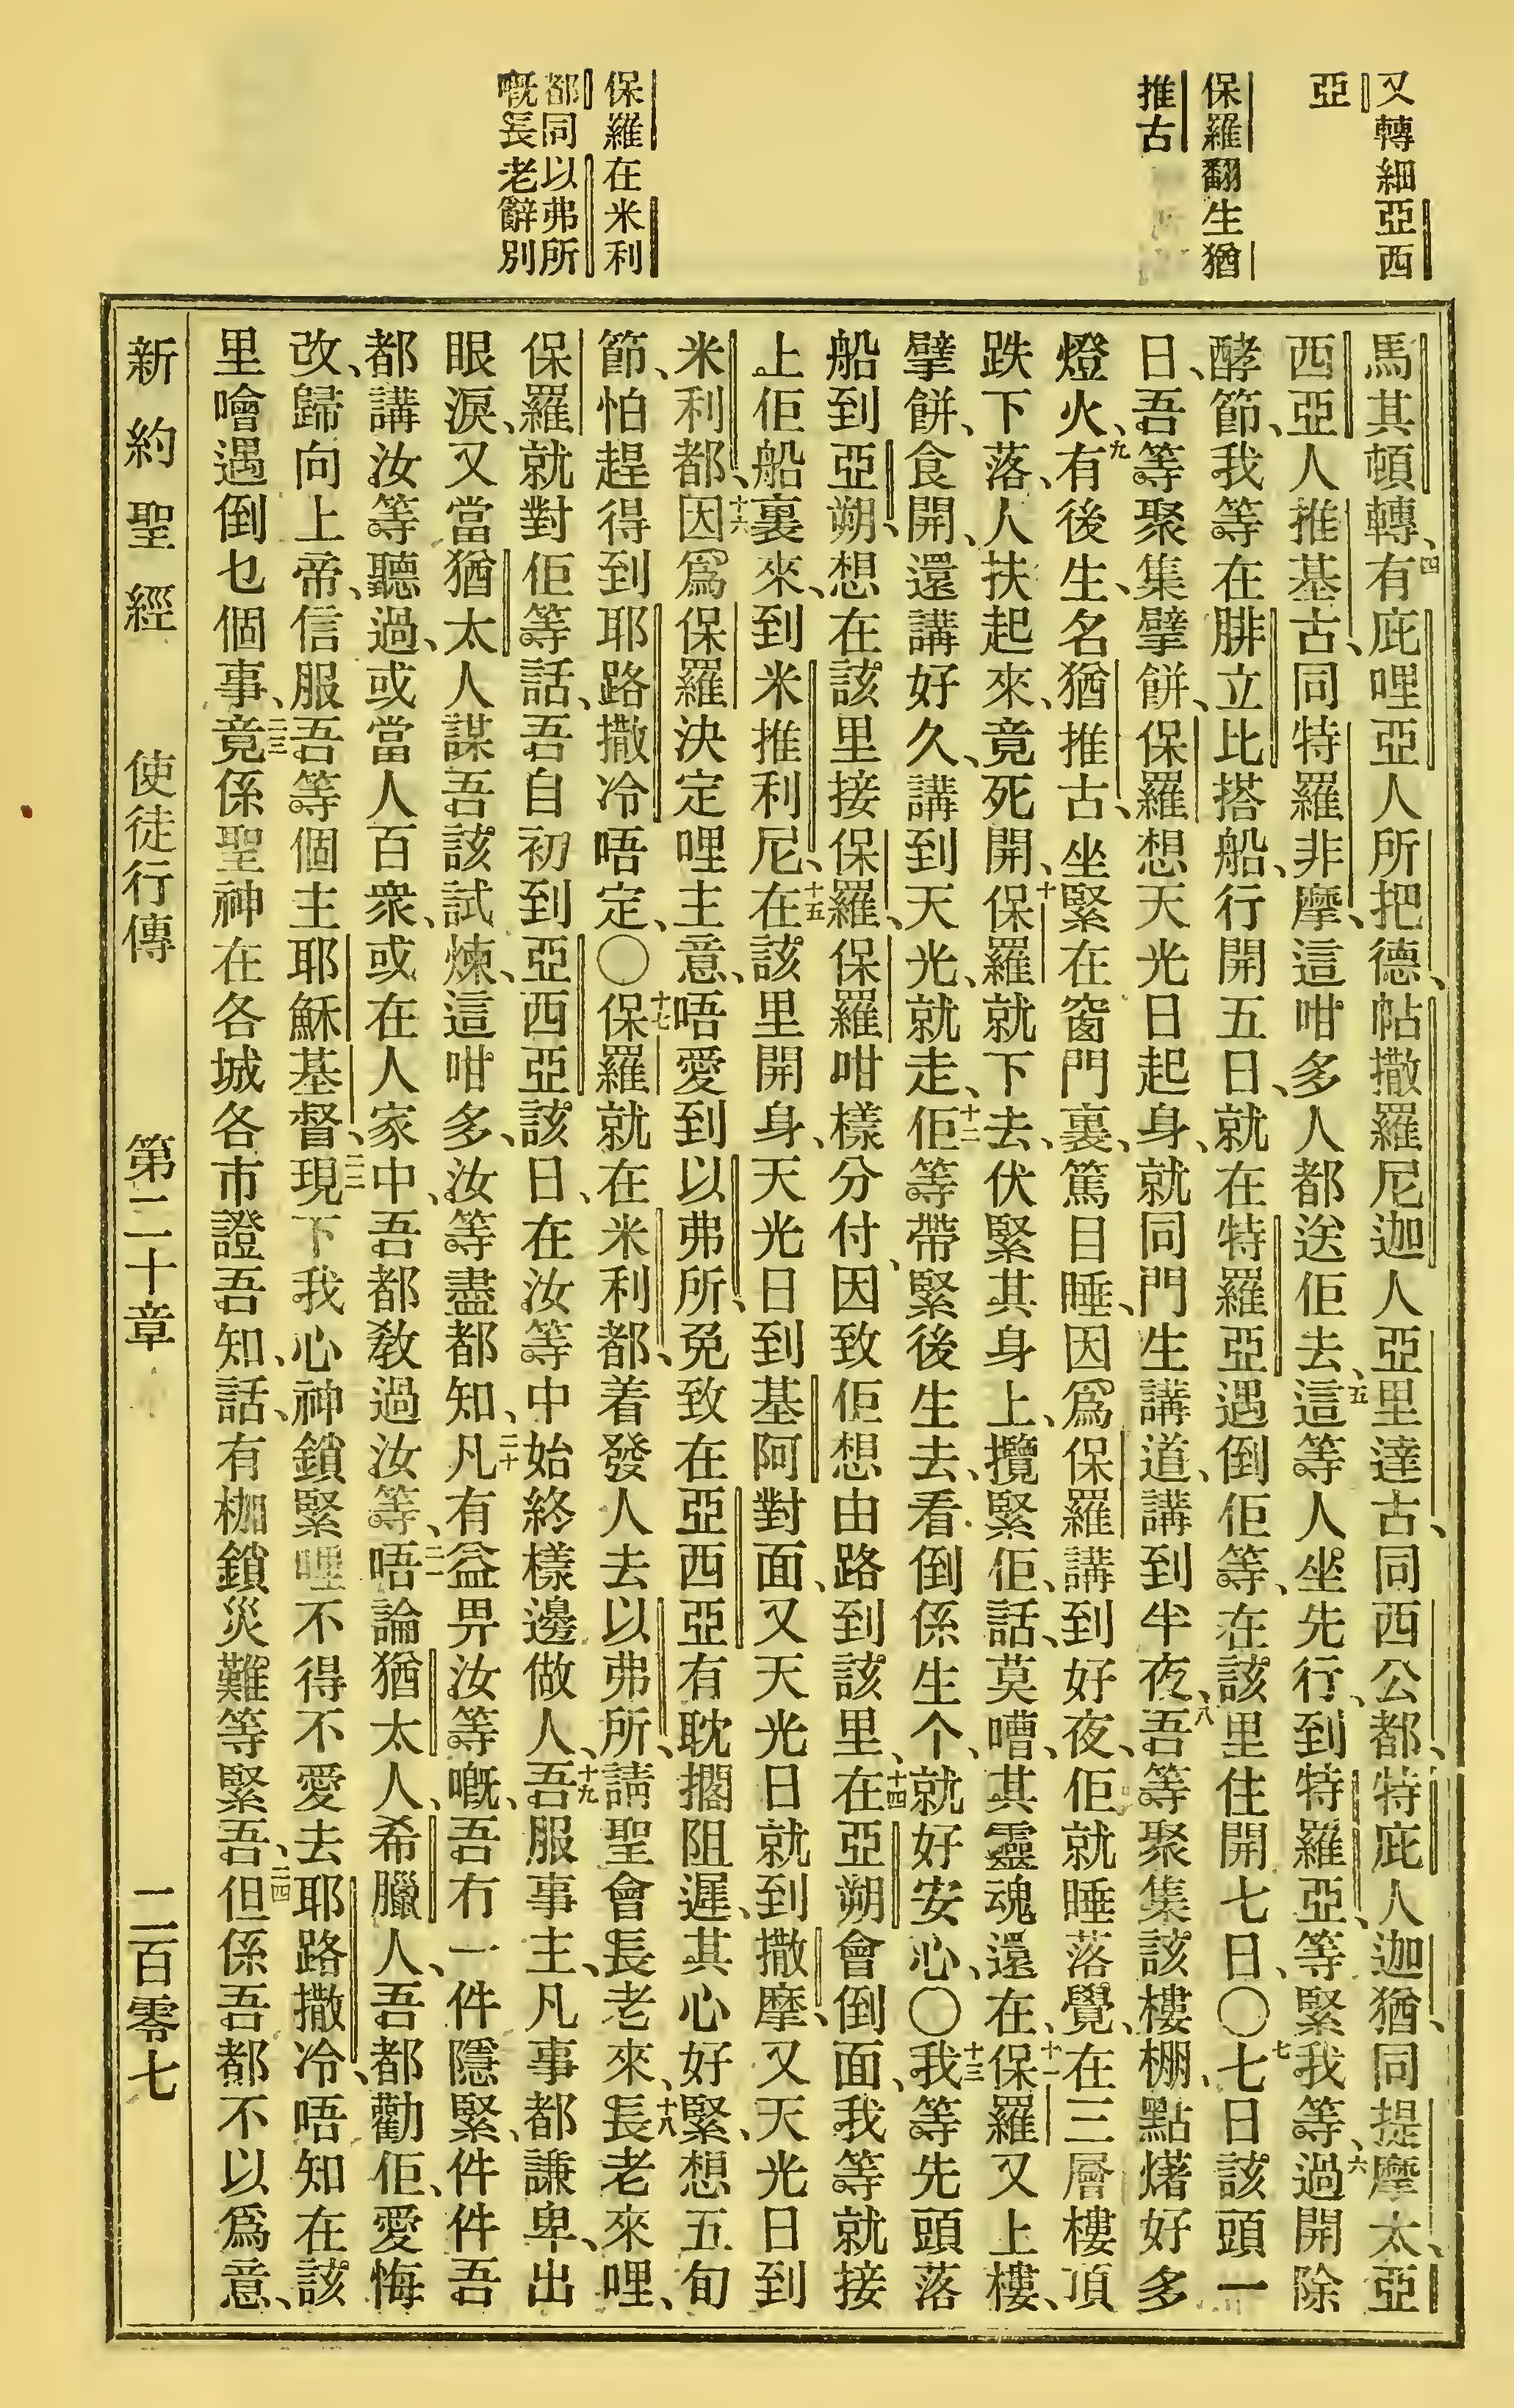 又轉細亞西
亞
保羅翻生猶
推古
保羅在米利
都同以弗所
嘅長老辭別
馬其頓轉、四有庇哩亞人所把德、帖撒羅尼迦人亞里達古、同西公都、特庇人迦猶、同提摩太、亞
西亞人推基古、同特羅非摩、這咁多人都送佢去、五這等人坐先行、到特羅亞、等緊我等、六過開除
酵節、我等在腓立比搭船、行開五日、就在特羅亞遇倒佢等、在該里住開七日、〇七七日該頭一
日、吾等聚集擘餅、保羅想天光日起身、就同門生講道、講到半夜、八吾等聚集該樓棚、點㷮好多
燈火、九有後生、名猶推古、坐緊在窗門裏、篤目睡、因爲保羅講到好夜、佢就睡落覺、在三層樓頂
跌下落、人扶起來、竟死開、十保羅就下去、伏緊其身上、攬緊佢、話、莫嘈、其靈魂還在、十一保羅又上樓、
擘餅、食開、還講好久、講到天光、就走、十二佢等帶緊後生去、看倒係生个、就好安心、〇十三我等先頭落
船到亞朔、想在該里接保羅、保羅咁樣分付、因致佢想由路到該里、十四在亞朔會倒面、我等就接
上佢船裏來、到米推利尼、十五在該里開身、天光日到基阿對面、又天光日就到撒摩、又天光日到
米利都、十六因爲保羅決定哩主意、唔愛到以弗所、免致在亞西亞有耽擱阻遲、其心好緊、想五旬
節、怕趕得到耶路撒冷唔定、〇十七保羅就在米利都、着發人去以弗所、請聖會長老來、十八長老來哩、
保羅就對佢等話、吾自初到亞西亞該日、在汝等中始終樣邊做人、十九吾服事主、凡事都謙卑、出
眼淚、又當猶太人謀吾該試煉、這咁多、汝等盡都知、二十凡有益畀汝等嘅、吾冇一件隱緊、件件吾
都講汝等聽過、或當人百衆、或在人家中、吾都教過汝等、二一唔論猶太人、希臘人、吾都勸佢、愛悔
改、歸向上帝、信服吾等個主耶穌基督、二二現下我心神鎖緊哩不得不愛去耶路撒冷、唔知在該
里噲遇倒乜個事、二三竟係聖神在各城各市證吾知、話、有枷鎖災難等緊吾、二四但係吾都不以爲意、
新約聖經　使徒行傳　第二十章　二百零七